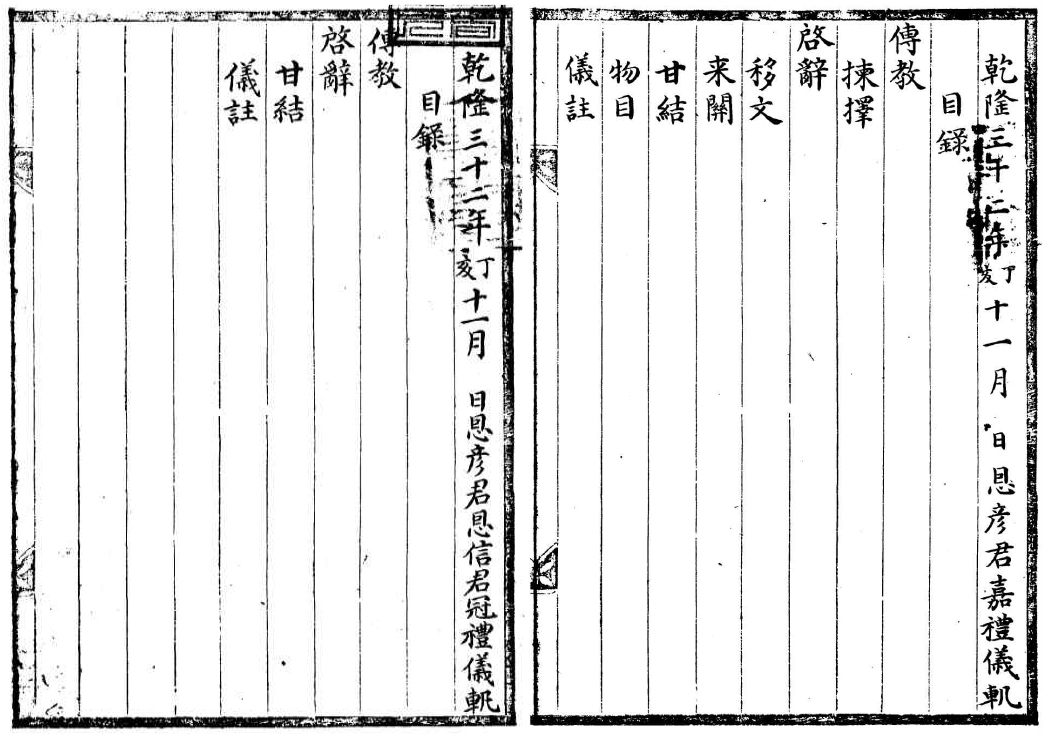 乾隆三十二年丁亥十一月 日恩彦君嘉禮儀軌
目錄
傳教
揀擇
啓辭
移文
来關
甘結
物目
儀註
乾隆三十二年丁亥十一月 日恩彦君恩信君冠禮儀軌
目錄
傳教
啓辭
甘結
儀註